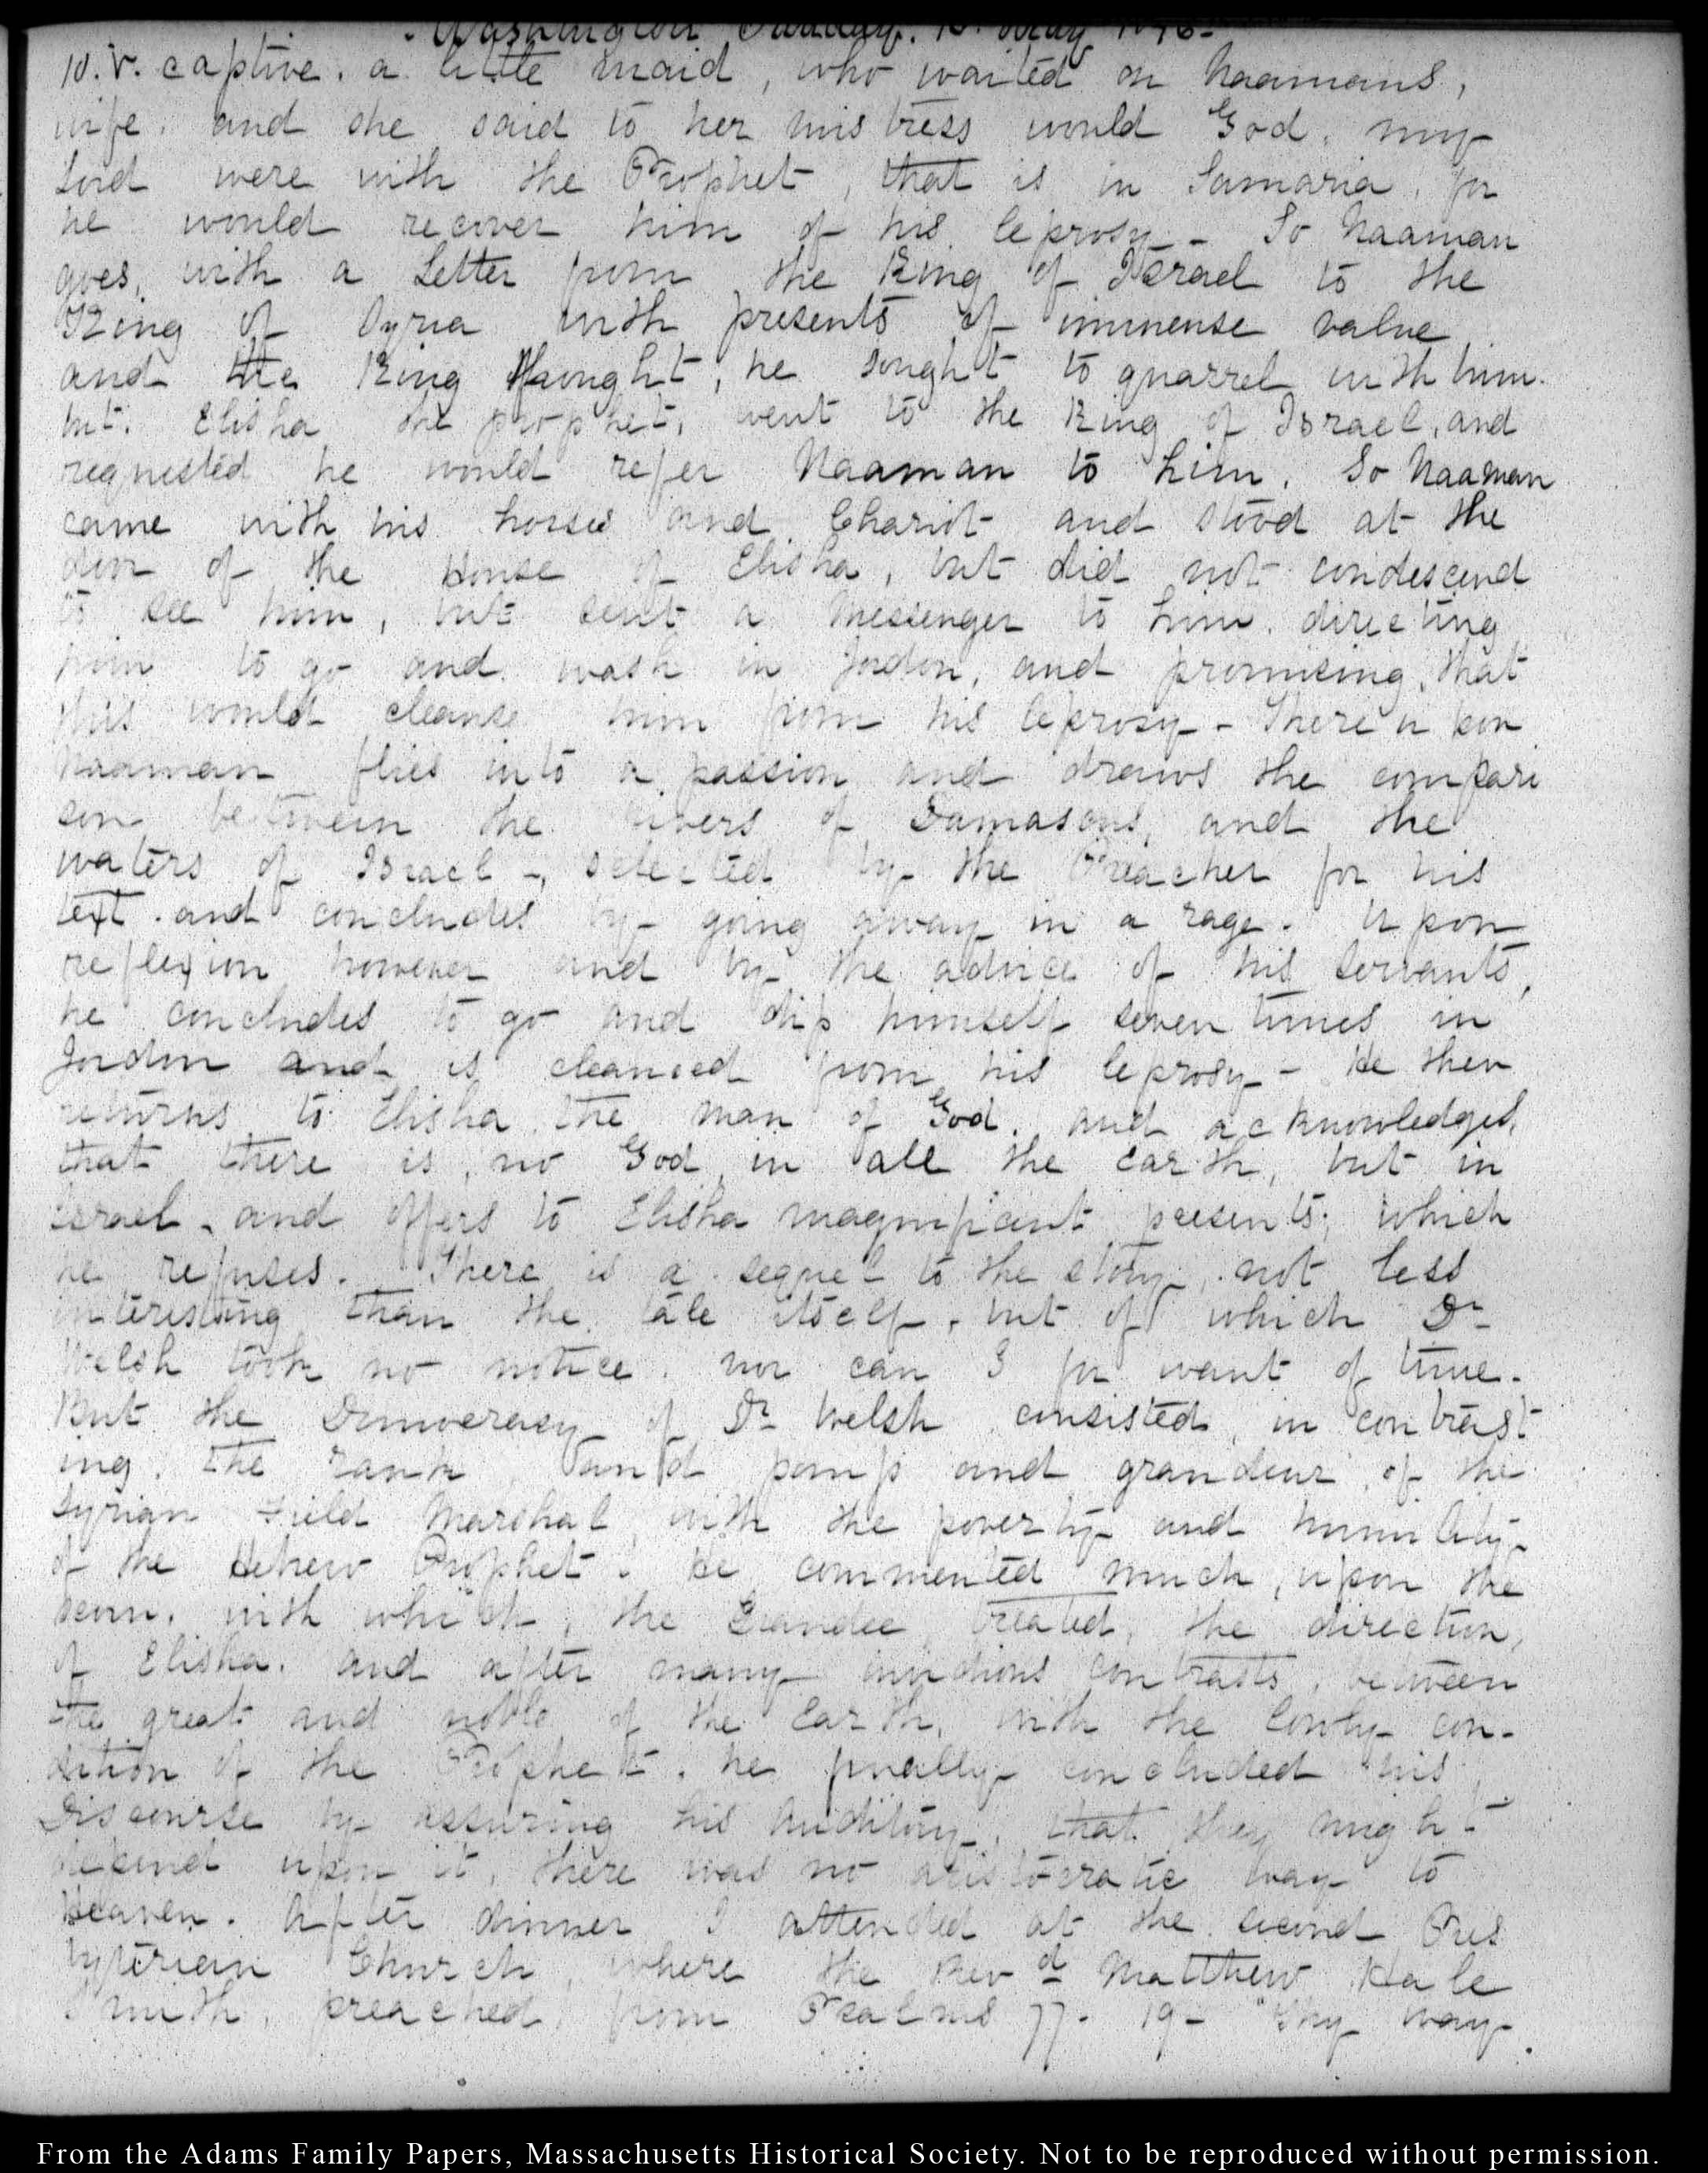 Washington Sunday. 10. May 1846-
10. V. captive. a little maid, who waited on Naamans,
wife. and she said to her mistress would God. my
Lord were with the Prophet, that is in Samaria, for
he would recover him of his leprosy- So Naaman
goes, with a Letter from the King of Israel to the
King of Syria with presents of immense value
and the King thought, he sought to quarrel with him.
but. Elisha the prophet, went to the King of Israel, and
requested he would refer Naaman to him. So Naaman
came with his horses and Chariot and stood at the
door of the House of Elisha, but did not condescend
to see him, but sent a Messenger to him. directing
him to go and wash in Jordon, and promising, that
this would cleanse him from his leprosy- Thereupon
Naaman flies into a passion and draws the compari
son between the rivers of Damascus, and the
waters of Israel-, selected by the Preacher for his
text. and concludes by going away in a rage. Upon
reflexion however and by the advice of his servants,
he concludes to go and dip himself seven times in
Jordon and is cleansed from his leprosy- He then
returns to Elisha the man of God. and acknowledges,
that there is, no God in all the Earth, but in
Israel. and offers to Elisha magnificent presents; which
he refuses. There is a sequel to the story, not less
interesting than the tale itself. but of which Dr
Welsh took no notice. nor can I for want of time.
But the Democracy of Dr Welsh consisted in contrast
ing. the rank and pomp and grandeur of the
Syrian Field Marshal with the poverty and humility
of the Hebrew Prophet. He commented much, upon the
scorn. with which, the Grandee treated, the direction,
of Elisha. and after many invidious contrasts, between
the great and noble of the Earth, with the lowly con-
dition of the Prophet. he finally concluded his
Discourse by assuring his Auditory, that they might
depend upon it, there was no aristocratic way to
Heaven. After dinner I attended at the second Pres
byterian Church, where the Revd Matthew Hale
Smith, preached, from Psalms 77. 19- "Thy way
From the Adams Family Papers, Massachusetts Historical Society. Not to be reproduced without permission.